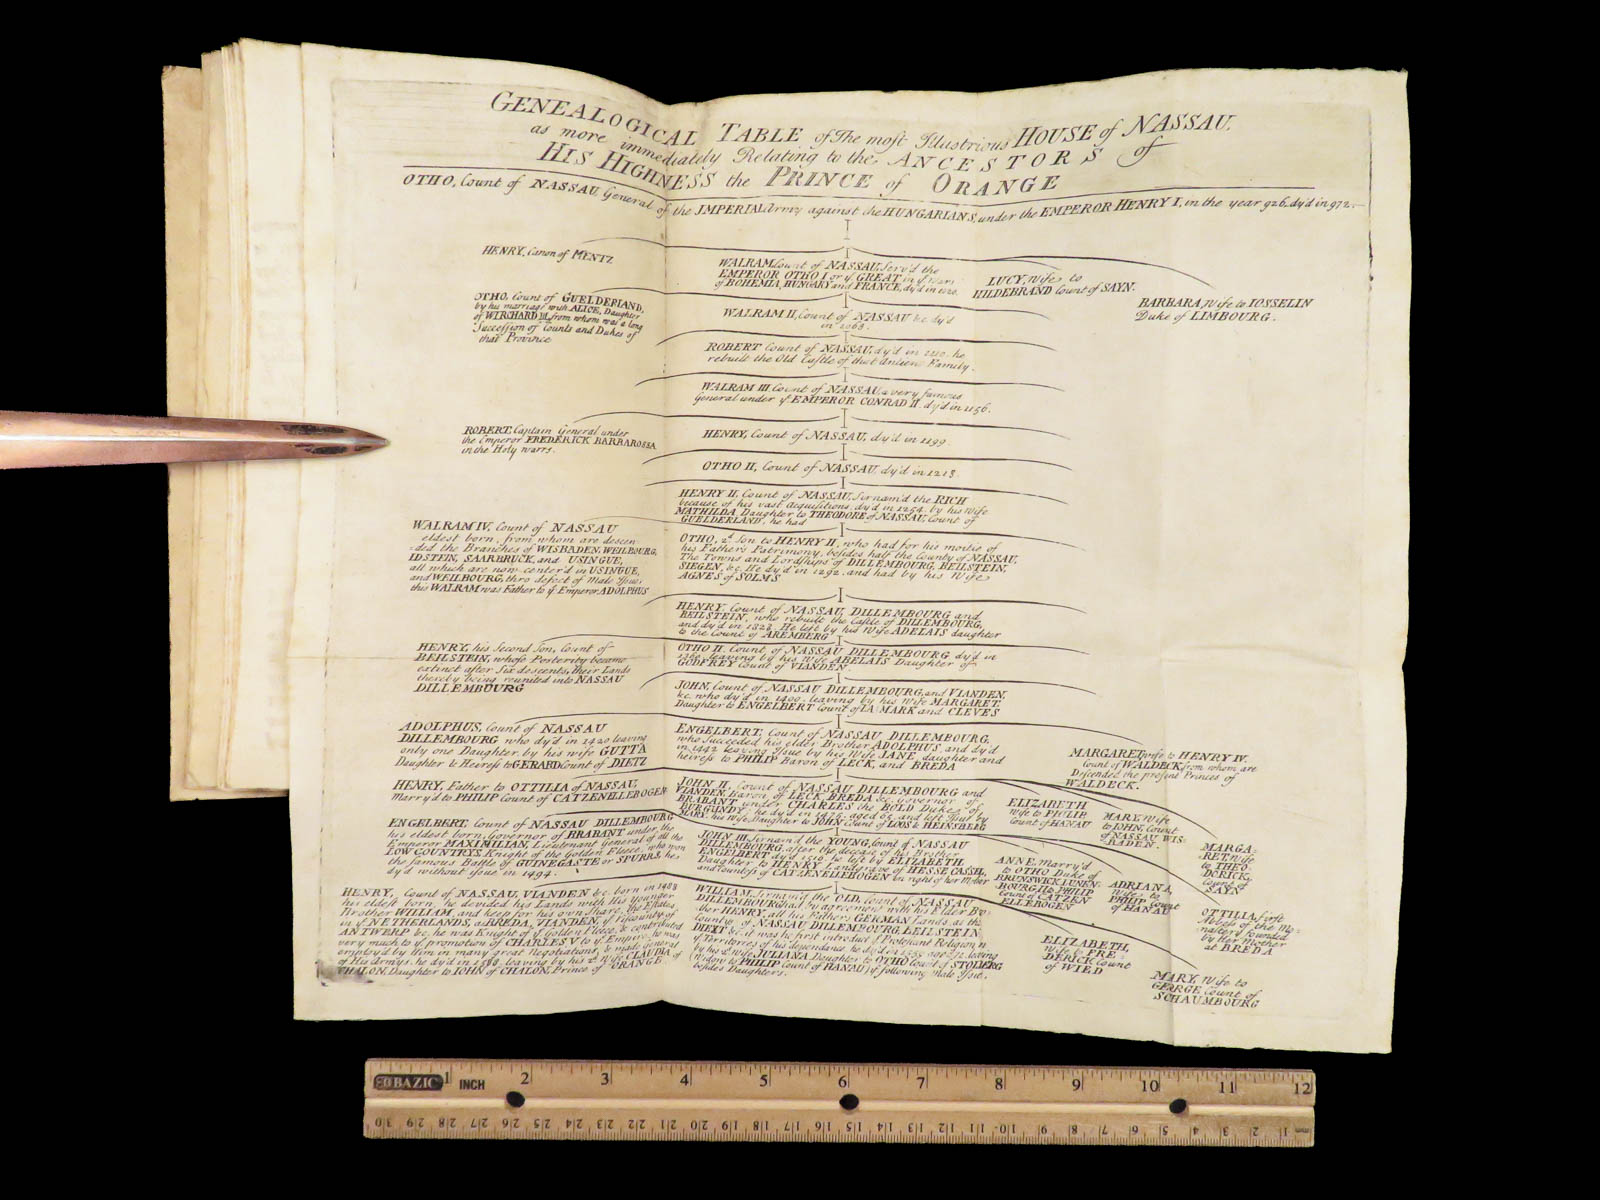 GENEALOGICAL TABLE of The most Illustrious HOUSE of NASSAU,
as more immediately Relating to the ANCESTORS of
HIS HIGHNESS the PRINCE of ORANGE
OTHO, Count of NASSAU General of the IMPERIAL Army against the HUNGARIANS, under the EMPEROR HENRY I, in the year 926, dy'd in 972.
HENRY, Canon of MENTZ
WALRAM, Count of NASSAU, Serv'd the
EMPEROR OTHO I or ye GREAT in ye Wars
of BOHEMIA, HUNGARY and FRANCE, dy'd in 1020.
LUCY, Wife to
HILDEBRAND Count of SAYN.
BARBARA, Wife to JOSSELIN
Duke of LIMBOURG.
OTHO, Count of GUELDERLAND,
by his marriage with ALICE, Daughter
of WIRCHARD III, from whom was a long
Succession of Counts and Dukes of
that Province
WALRAM II, Count of NASSAU &c. dy'd
in 1068.
ROBERT Count of NASSAU, dy'd in 1110. he
rebuilt the Old Castle of that Ancient Family.
WALRAM III Count of NASSAU, a very famous
General under ye EMPEROR CONRAD II. dy'd in 1156.
ROBERT, Captain General under
the Emperor FREDERICK BARBAROSSA
in the Holy warrs.
HENRY, Count of NASSAU, dy'd in 1199
OTHO II, Count of NASSAU, dy'd in 1218.
HENRY II, Count of NASSAU, Sirnam'd the RICH
because of his vast Acquisitions, dy'd in 1254. by his Wife
MATHILDA, Daughter to THEODORE of NASSAU, Count of
GUELDERLAND, he had
WALRAM IV, Count of NASSAU
eldest born, from whom are descen-
ded the Branches of WISBADEN, WEILBOURG,
IDSTEIN, SAARBRUCK, and USINGUE,
all which are now center'd in USINGUE,
and WEILBOURG, thro defect of Male Issue,
this WALRAM was Father to ye Emperor ADOLPHUS
OTHO, 2d Son to HENRY II, who had for his moitie of
his Father's Patrimony, besides half the County of NASSAU,
the Towns and Lordships of DILLEMBOURG, BEILSTEIN,
SIEGEN, &c. He dy'd in 1292. and had by his Wife
AGNES of SOLMS
HENRY, Count of NASSAU, DILLEMBOURG and
BEILSTEIN, who rebuilt the Castle of DILLEMBOURG,
and dy'd in 1328. He left by his Wife ADELAIS daughter
to the Count of AREMBERG
HENRY, his Second Son, Count of
BEILSTEIN, whose Posterity became
extinct after Six descents, their Lands
thereby being reunited into NASSAU
DILLEMBOURG
OTHO II, Count of NASSAU DILLEMBOURG dy'd in
leaving by his Wife ABELAIS Daughter of
GODFREY Count of VIANDEN.
JOHN, Count of NASSAU DILLEMBOURG, and VIANDEN,
&c. who dy'd in 1400. leaving by his Wife MARGARET,
Daughter to ENGELBERT Count of LA MARK and CLEVES
ADOLPHUS, Count of NASSAU
DILLEMBOURG who dy'd in 1420 leaving
only one Daughter, by his wife GUTTA
Daughter & Heiress to GERARD Count of DIETZ
ENGELBERT, Count of NASSAU DILLEMBOURG,
who Succeeded his elder Brother ADOLPHUS, and dy'd
in 1442 leaving Issue by his Wife JANE, daughter and
heiress to PHILIP Baron of LECK, and BREDA
MARGARET wife to HENRY IV,
Count of WALDECK, from whom are
Discended the present Princes of
WALDECK.
HENRY, Father to OTTILIA of NASSAU,
Marry'd to PHILIP Count of CATZENELLEBOGEN
JOHN II, Count of NASSAU DILLEMBOURG and
VIANDEN, Baron of LECK BREDA &c. governor of
BRABANT under CHARLES the BOLD Duke of
BURGUNDY, he dy'd in 1475. aged 65 and left Issue by
MARY, his Wife, Daughter to JOHN Count of LOOS & HEINSBERG
ELIZABETH
wife to PHILIP
Count of HANAU
MARY, Wife
to JOHN, Count
of NASSAU WIS-
BADEN.
MARGA-
RET, Wife
to THEO-
DORICK,
Count of
SAYN
ENGELBERT, Count of NASSAU DILLEMBOURG
his eldest born, Governor of BRABANT under the
Emperor MAXIMILIAN, Lieutenant General of all the
LOW COUNTRYS, Knight of the Golden Fleece, who won
the famous Battle of GUINEGASTE or SPURRS, he
dy'd without issue in 1494.
JOHN III, Sirnam'd the YOUNG, Count of NASSAU
DILLEMBOURG, after the decease of his Brother
ENGELBERT dy'd 1516. he left by ELIZABETH
Daughter to HENRY Landgrave of HESSE CASSEL,
and Countess of CATZENELLEBOGEN in right of her Mother
ANNE, Marry'd
to OTHO Duke of
BRUNSWICK LUNEN-
BOURG, II to PHILIP
Count of CATZEN
ELLEBOGEN
ADRIANA,
wife to
PHILIP Count
of HANAU
OTTILIA, first
Abbess of the Mo-
nastery founded
by Her Mother
at BREDA
HENRY, Count of NASSAU, VIANDEN &c. born in 1483
his eldest born, he devided his Lands with His Younger
Brother WILLIAM, and keep for his own Share, the Estates
in ye NETHERLANDS, as BREDA, VIANDEN, ye Viscounty of
ANTWERP &c. he was Knight of ye Golden Fleece, & contributed
very much to ye promotion of CHARLES V to ye Empire, he was
employ'd by Him in many great Negotiations, & made General
of His Armys, he dy'd in 1538. leaving by his 2d Wife CLAUDIA of
CHALON, Daughter to JOHN of CHALON, Prince of ORANGE
WILLIAM, Sirnam'd the OLD, Count of NASSAU
DILLEMBOURG had by agreement with his Elder Bro-
ther HENRY, all his Fathers GERMAN Lands, as the
Countys of NASSAU DILLEMBOURG, BEILSTEIN,
DIEXT &c. it was he first introduc'd Protestant Religion in
ye Territories of his dependance, he dy'd in 1559 aged 72. leaving
by his 2d Wife JULIANA Daughter to OTHO Count of STOLBERG
(Widow to PHILIP Count of HANAU) ye following Male Issue,
besides Daughters.
ELIZABETH,
wife to FRE-
DERICK Count
of WIED
MARY, Wife to
GEORGE Count of
SCHAUMBOURG
BAZIC 1 INCH 2 3 4 5 6 7 8 9 10 11 12
30 29 28 27 26 25 24 23 22 21 20 19 18 17 16 15 14 13 12 11 10 9 8 7 6 5 4 3 2 1 mm